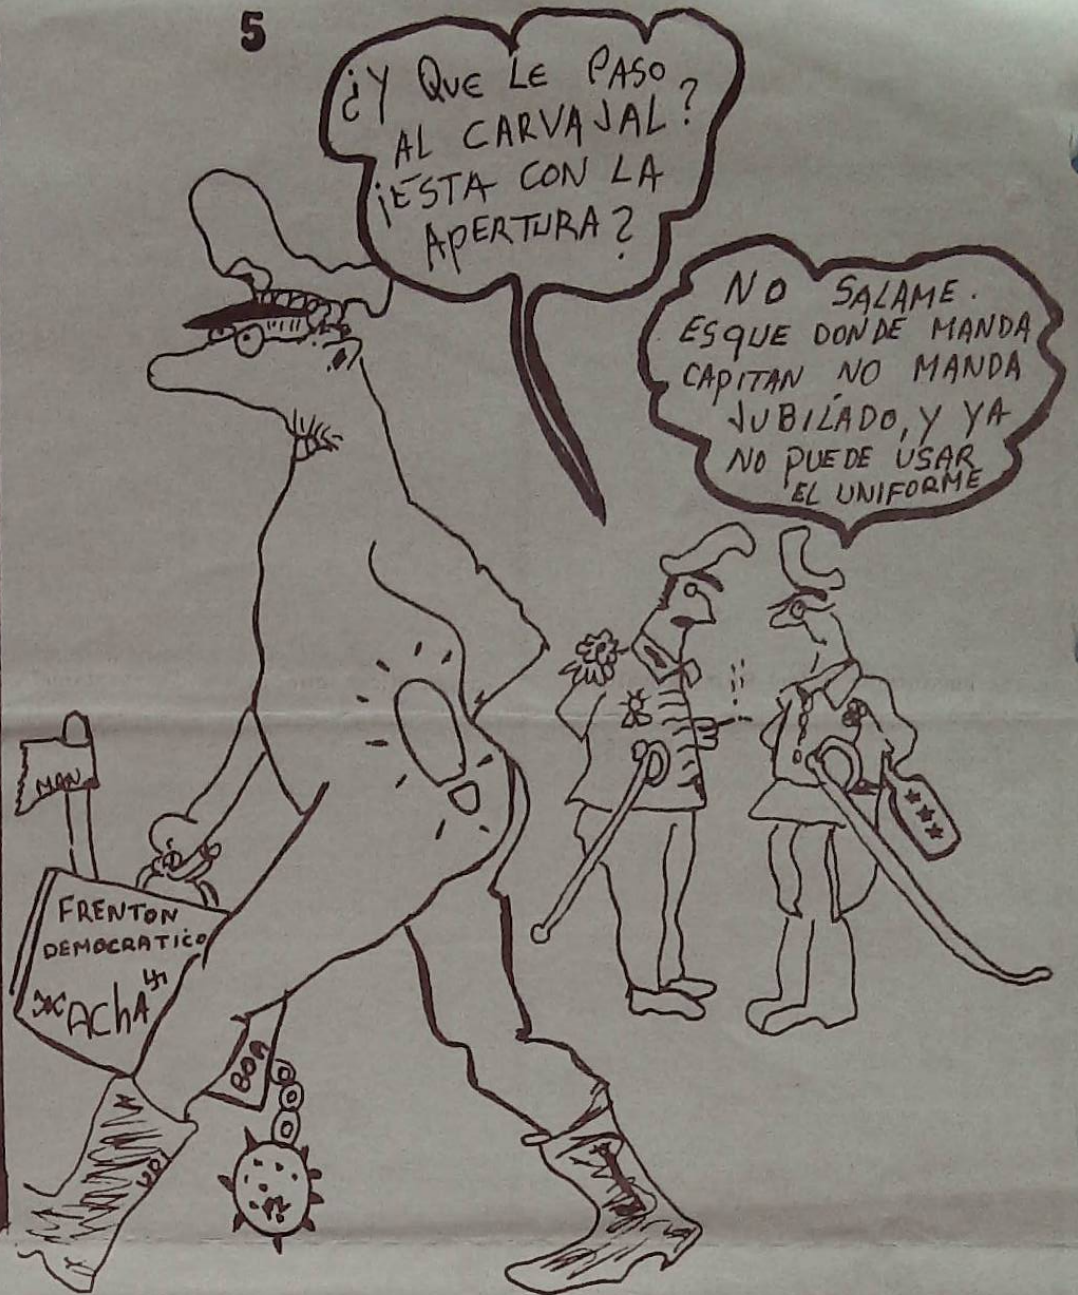 5
¿Y QUE LE PASO
AL CARVAJAL?
¡ESTA CON LA
APERTURA?
NO SALAME.
ES QUE DONDE MANDA
CAPITAN NO MANDA
JUBILADO, Y YA
NO PUEDE USAR
EL UNIFORME
MAN
FRENTON
DEMOCRATICO
ACHA
BOA